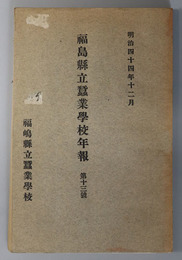 明治四十四年十二月
福島縣立蠶業學校年報 第十三號
福嶋縣立蠶業學校